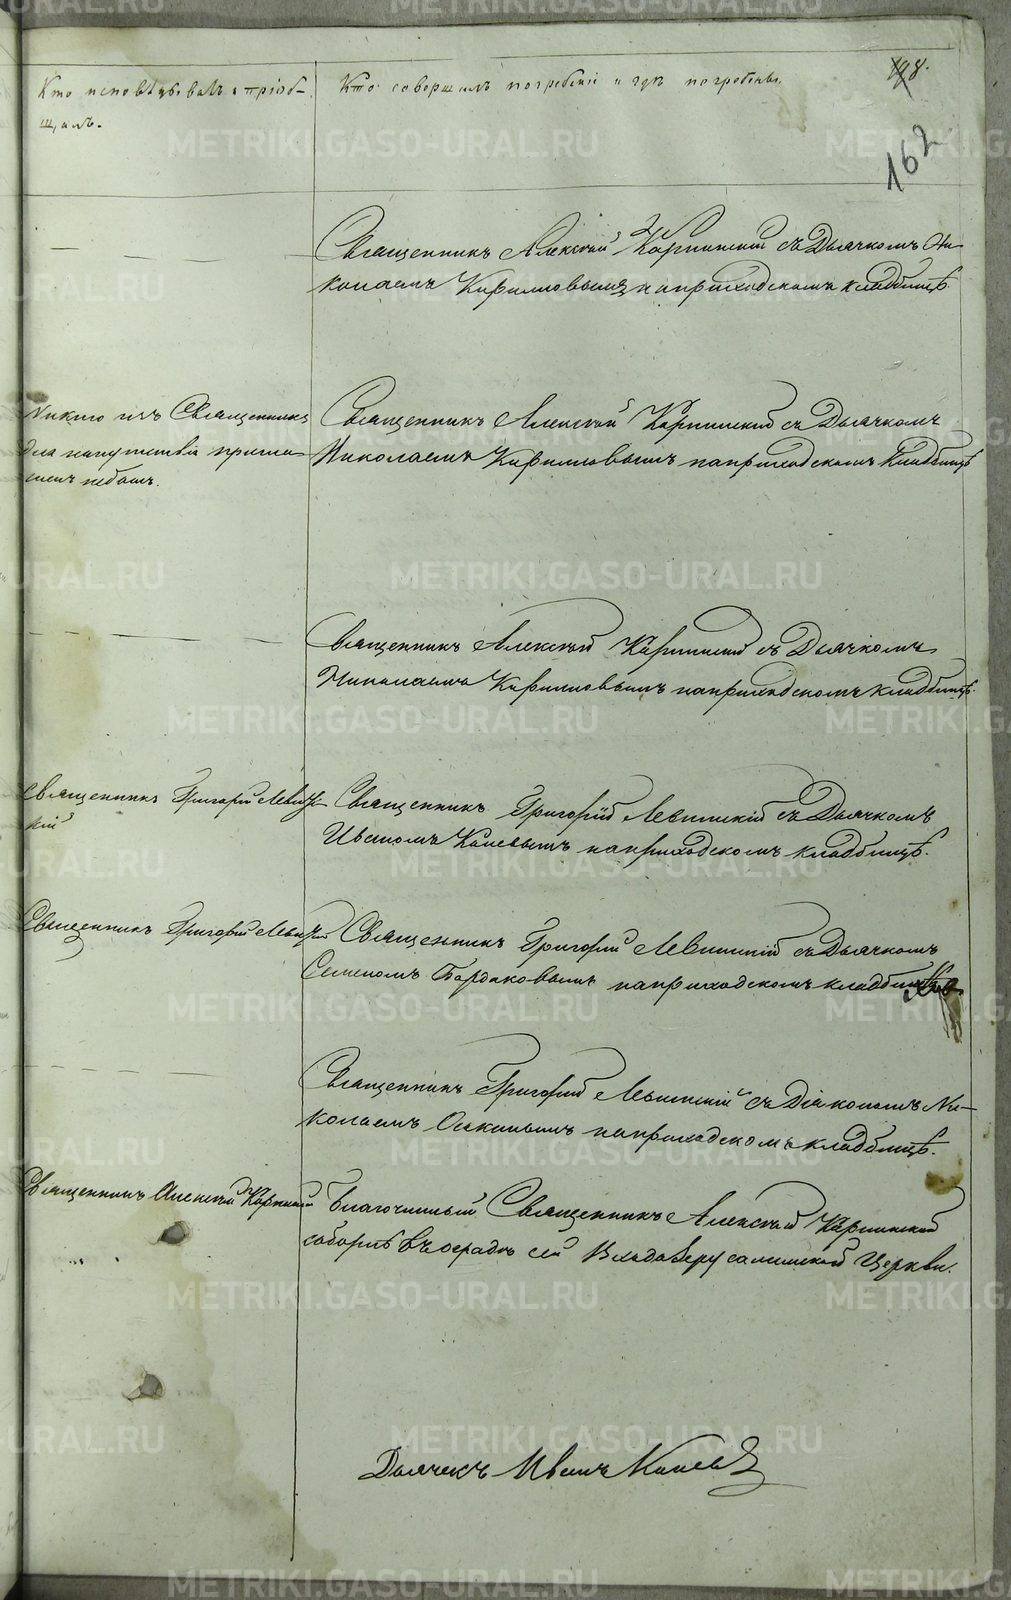 Кто исповѣдывалъ и пріоб-
щалъ.
Кто совершалъ погребеніе и гдѣ погребены.
198.
162
Священникъ Алексѣй Карпинскій съ Дьячкомъ Ни-
колаемъ Кирилловымъ на приходскомъ кладбищѣ
Никто изъ Священниковъ
для напутствія пригла-
шенъ небылъ.
Священникъ Алексѣй Карпинскій съ Дьячкомъ
Николаемъ Кирилловымъ на приходскомъ кладбищѣ
Священникъ Алексѣй Карпинскій съ Дьячкомъ
Николаемъ Кирилловымъ на приходскомъ кладбищѣ.
Священникъ Григорій Левиц-
кій
Священникъ Григорій Левитскій съ Дьячкомъ
Иваномъ Каневымъ на приходскомъ кладбищѣ.
Священникъ Григорій
Священникъ Григорій Левитскій съ Дьячкомъ
Семеномъ Бордаковымъ на приходскомъ кладбищѣ.
Священникъ Григорій Левитскій съ Діакономъ Ни-
колаемъ на приходскомъ кладбищѣ.
Священникъ Алексѣй Карпинскій
Благочинный Священникъ Алексѣй Карпинскій
соборнѣ въ оградѣ сей Входоіерусалимской Церкви.
Дьячекъ Иванъ Каневъ
METRIKI.GASO-URAL.RU